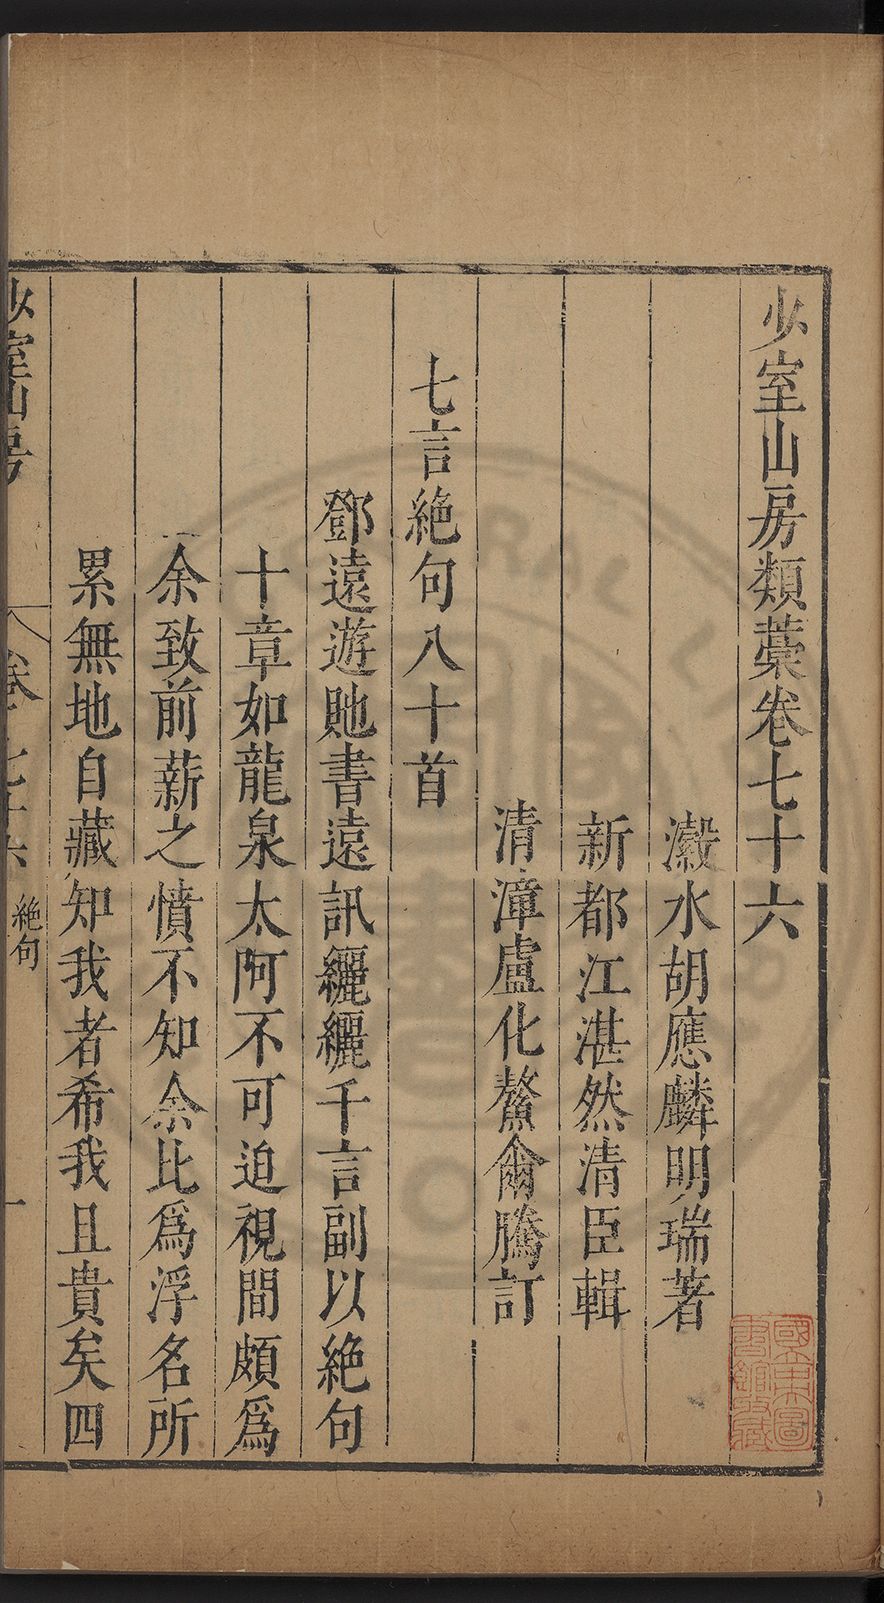 少室山房類藁卷七十六
瀫水胡應麟明瑞著
新都江湛然清臣輯
清漳盧化鰲爾騰訂
七言絶句八十首
鄧遠遊貤書遠訊纚纚千言副以絶句
十章如龍泉太阿不可迫視間頗爲
余致前薪之憤不知余比爲浮名所
累無地自藏知我者希我且貴矣四
少室山房
卷七十六
絶句
一
國立東圖
書館收藏